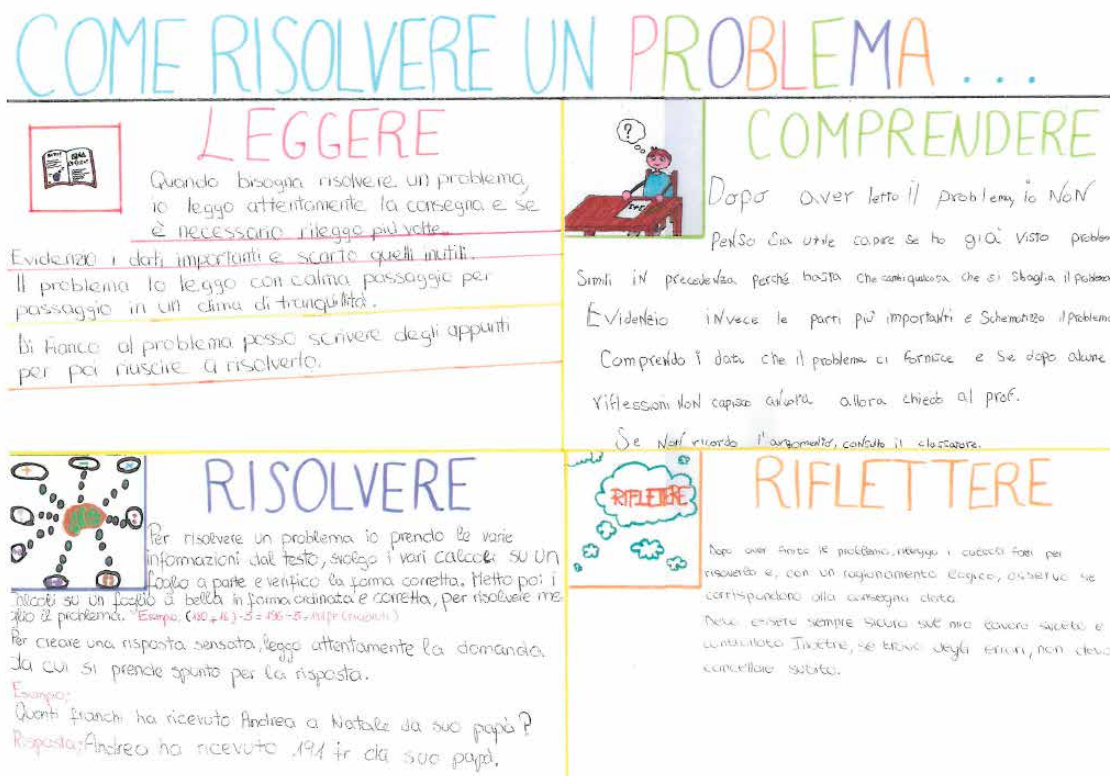 COME RISOLVERE UN PROBLEMA...
LEGGERE
Quando bisogna risolvere un problema,
io leggo attentamente la consegna e se
è necessario rileggo più volte.
Evidenzio i dati importanti e scarto quelli inutili.
Il problema lo leggo con calma passaggio per
passaggio in un clima di tranquillità.
Di fianco al problema posso scrivere degli appunti
per poi riuscire a risolverlo.
?
COMPRENDERE
Dopo aver letto il problema, io NON
PENSO Sia utile capire se ho già visto
Simili iN precedenza perché basta che cambi qualcosa che si sbaglia il problema
EvideNzio iNvece le parti più importanti e Schematizzo il problema
CompreNdo i dati che il problema ci fornisce e Se dopo alcune
riflessioni NoN capisco ancora allora chiedo al prof.
Se NoN ricordo l'argomento, consulto il classatore.
RISOLVERE
Per risolvere un problema io prendo le varie
informazioni dal testo, svolgo i vari calcoli su un
foglio a parte e verifico la forma corretta. Metto poi i
calcoli su un foglio a bella in forma ordinata e corretta, per risolvere me
glio il problema. Esempio: (180+16)-5=196-5=191fr (ricevuti)
Per creare una risposta sensata, leggo attentamente la domanda
da cui si prende spunto per la risposta.
Esempio:
Quanti franchi ha ricevuto Andrea a Natale da suo papà?
Risposta: Andrea ha ricevuto 191 fr da suo papà.
RIFLETTERE
RIFLETTERE
Dopo aver finito il problema, rileggo i calcoli fatti per
risolverlo e, con un ragionamento logico, osservo se
corrispondono alla consegna data.
Devo essere sempre sicuro sul mio lavoro svolto e
controllato. Inoltre, se trovo degli errori, non devo
cancellare subito.